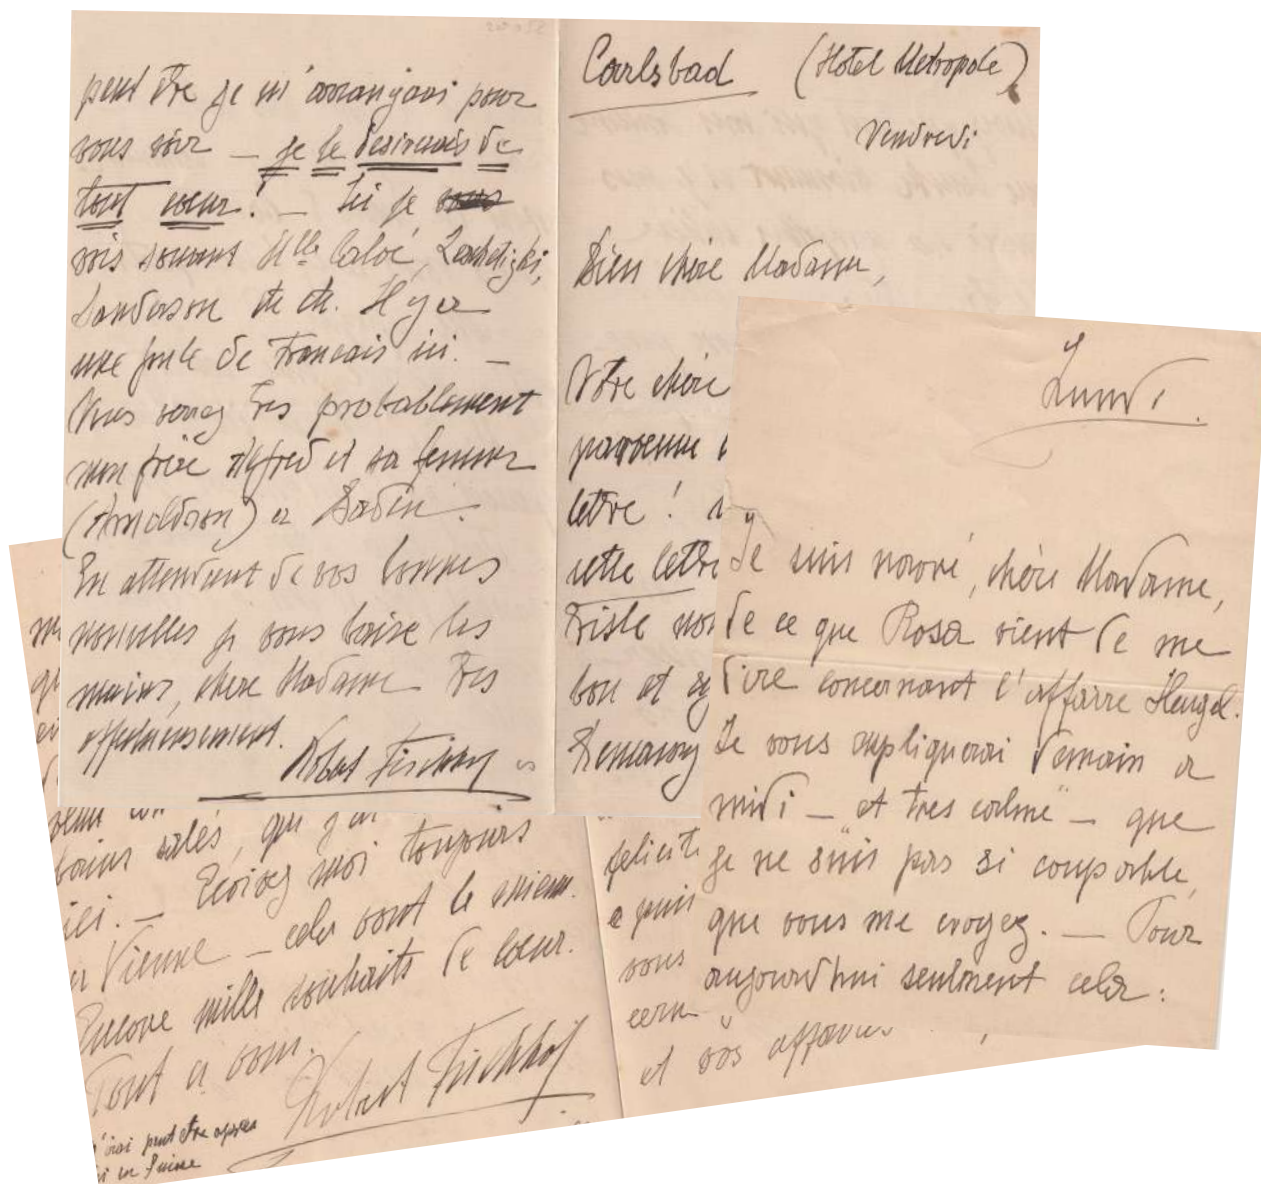 peut être je m'arrangerai pour
vous voir — je le desirerais de
tout coeur! — Ici je
vois souvent Mlle Caloé, Leschetizki,
Sanderson etc etc. Il y a
une foule de Francais ici. —
Vous verrez tres probablement
mon frère Alfred et sa femme
(Arnoldson) a
En attendant de vos bonnes
nouvelles je vous baise les
mains, chere Madame tres
affectueusement.
Robert Fischhof
Carlsbad (Hôtel Metropole)
Vendredi
Bien chère Madame,
Votre chère
parvenue
lettre!
cette lettre
triste
bon et
Lundi.
Je suis navré, chère Madame,
de ce que Rosa vient de me
dire concernant l'affaire Heugel.
Je vous expliquerai demain a
midi — et tres calme" — que
je ne suis pas si coupable,
que vous me croyez. — Pour
aujourd'hui seulment cela:
bains salés, que j'ai
ici. — Ecrivez moi toujours
a Vienne — cela vaut le mieux.
Encore mille souhaits de coeur.
Tout a vous.
Robert Fischhof
j'irai peut être apres
ici en Suisse
felicite
a puis
vous
et vos affaires